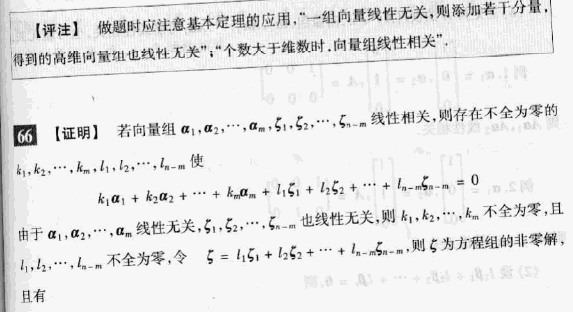 【评注】 做题时应注意基本定理的应用,“一组向量线性无关,则添加若干分量,
得到的高维向量组也线性无关”;“个数大于维数时,向量组线性相关”.
66 【证明】 若向量组 α₁,α₂,⋯,αₘ,ζ₁,ζ₂,⋯,ζₙ₋ₘ 线性相关,则存在不全为零的
k₁,k₂,⋯,kₘ,l₁,l₂,⋯,lₙ₋ₘ 使
k₁α₁ + k₂α₂ + ⋯ + kₘαₘ + l₁ζ₁ + l₂ζ₂ + ⋯ + lₙ₋ₘζₙ₋ₘ = 0
由于 α₁,α₂,⋯,αₘ 线性无关,ζ₁,ζ₂,⋯,ζₙ₋ₘ 也线性无关,则 k₁,k₂,⋯,kₘ 不全为零,且
l₁,l₂,⋯,lₙ₋ₘ 不全为零,令 ζ = l₁ζ₁ + l₂ζ₂ + ⋯ + lₙ₋ₘζₙ₋ₘ,则 ζ 为方程组的非零解,
且有